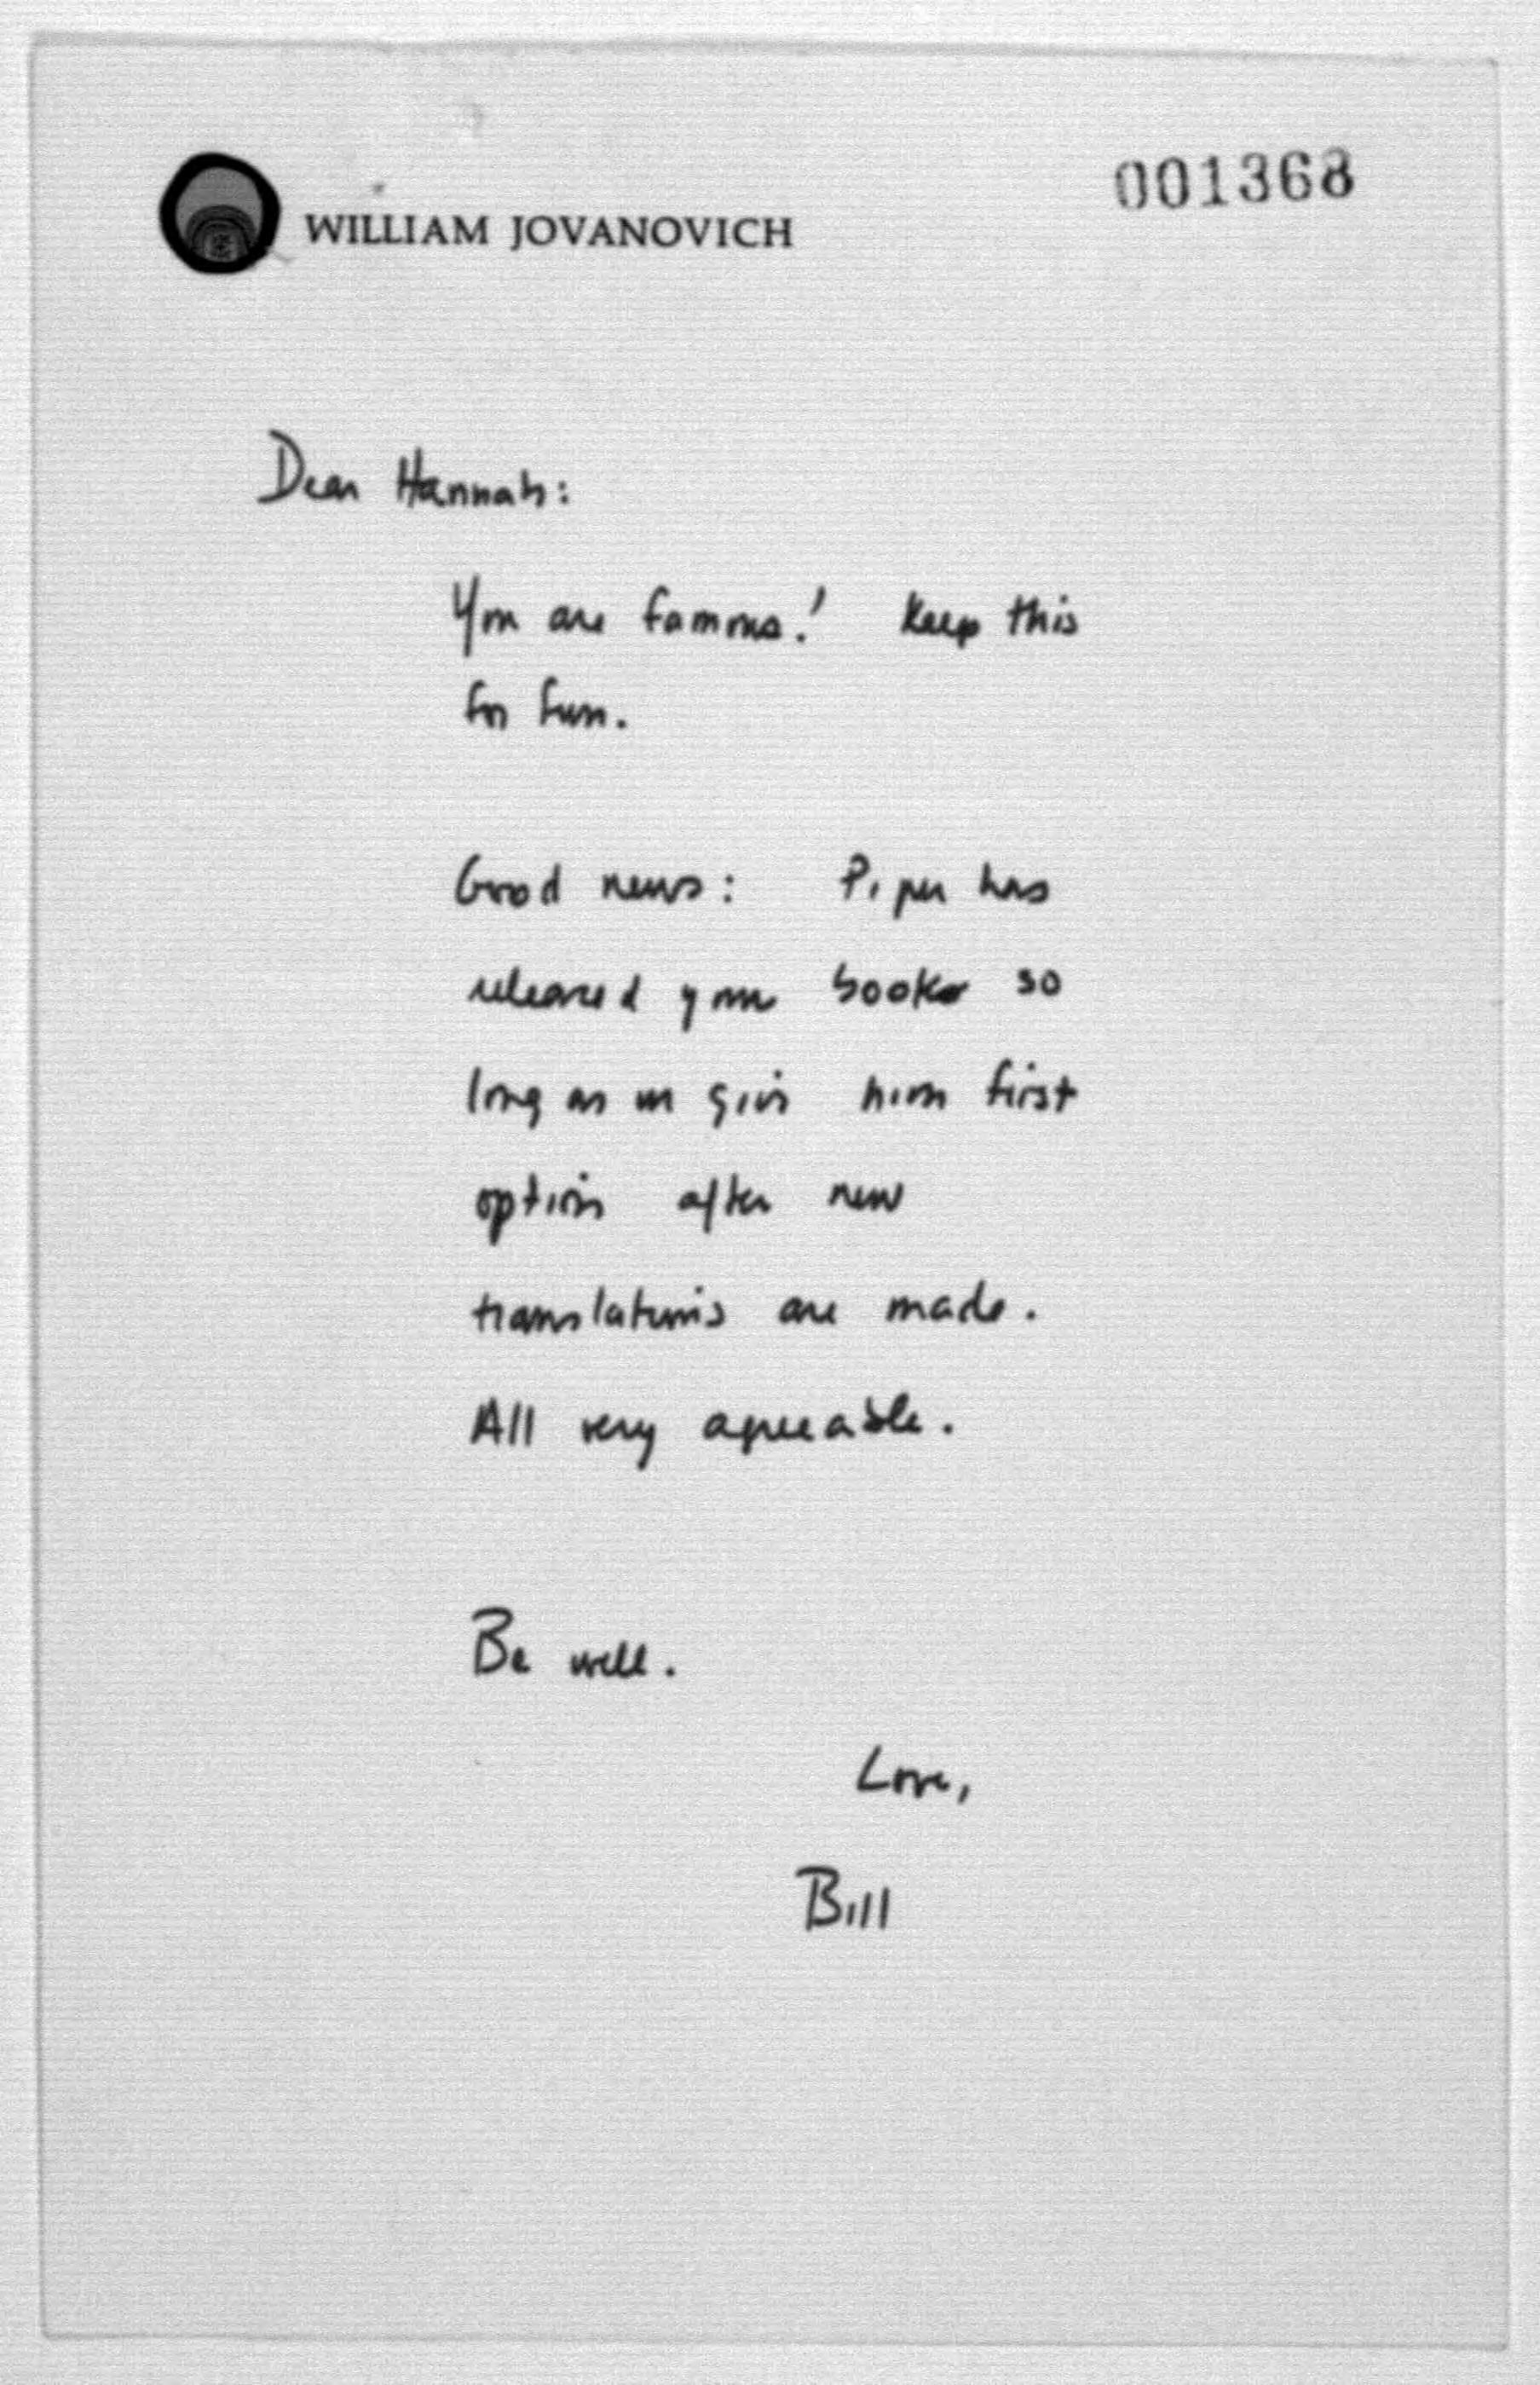 001368
WILLIAM JOVANOVICH
Dear Hannah:
You are famous! Keep this
for fun.
Good news: Piper has
released your books so
long as we give him first
option after new
translations are made.
All very agreeable.
Be well.
Love,
Bill